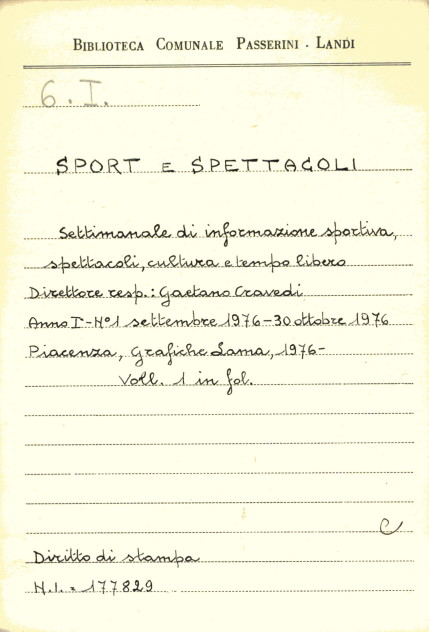 BIBLIOTECA COMUNALE PASSERINI - LANDI
6. I.
SPORT E SPETTACOLI
Settimanale di informazione sportiva,
spettacoli, cultura e tempo libero
Direttore resp.: Gaetano Cravedi
Anno I - N° 1 settembre 1976 - 30 ottobre 1976
Piacenza, Grafiche Lama, 1976-
Voll. 1 in fol.
C
Diritto di stampa
N.I. = 177829